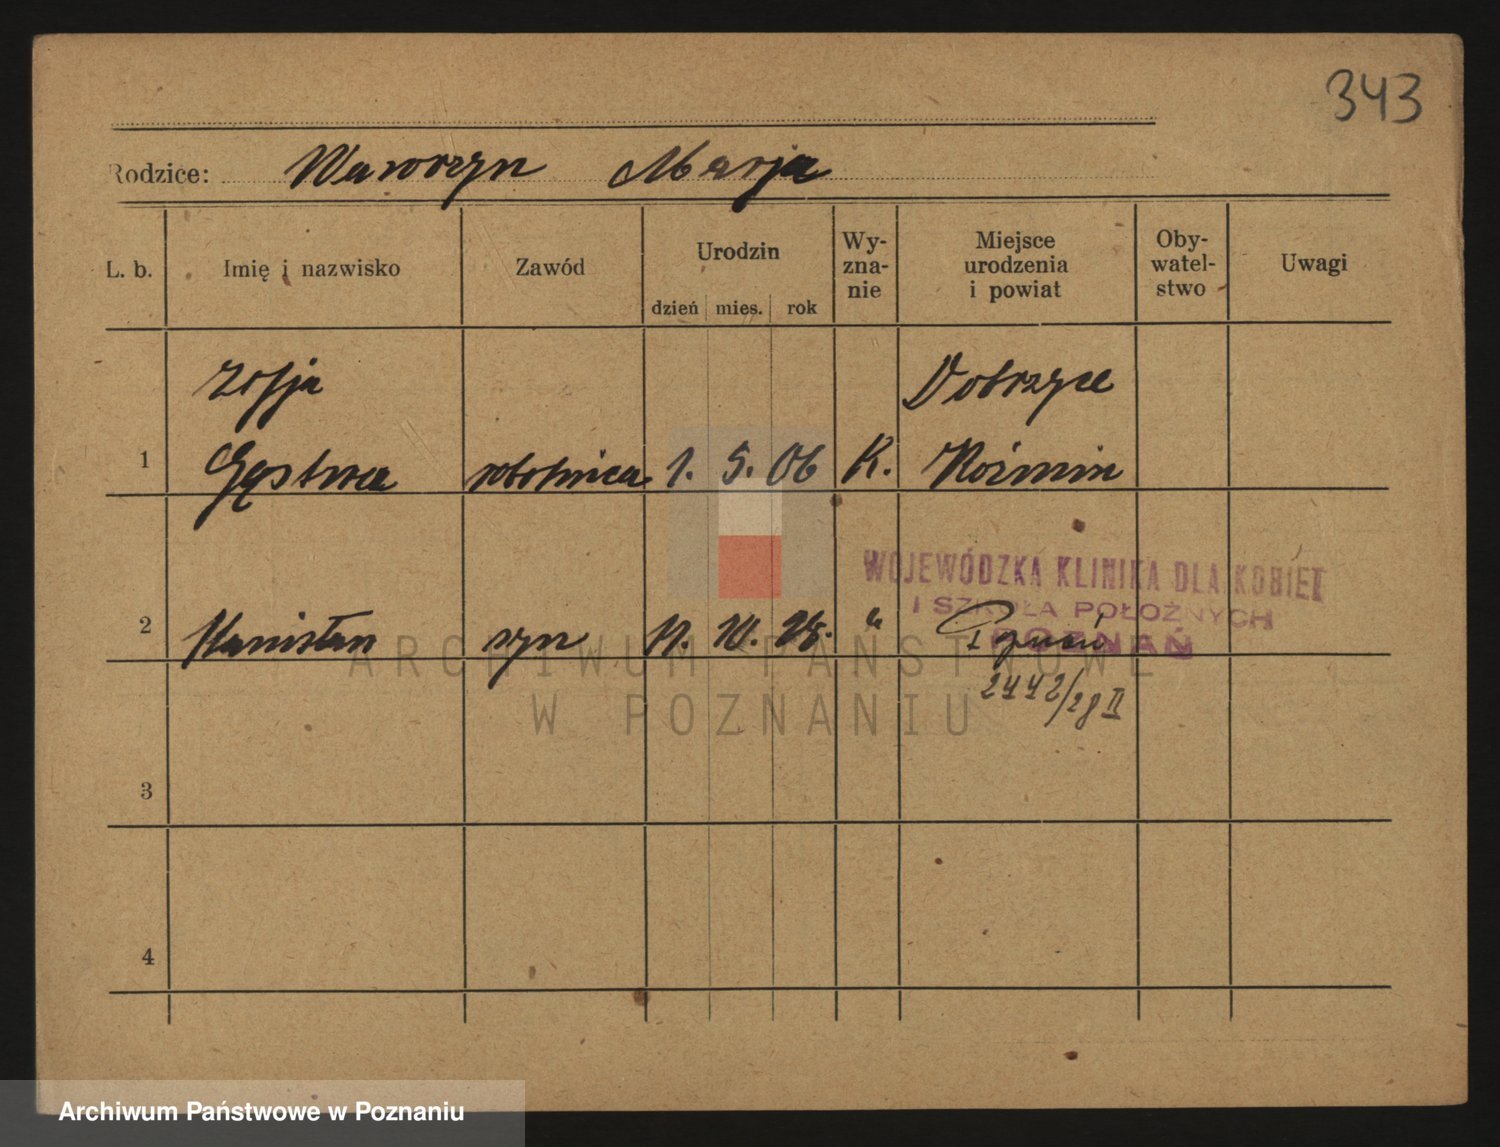 343
Rodzice: Wawrzyn Marja
L. b. Imię i nazwisko Zawód Urodzin Wy-zna-nie Miejsce urodzenia i powiat Oby-watel-stwo Uwagi
dzień mies. rok
Zofja Dobrzyce
1 robotnica 1. 5. 06 K. Koźmin
WOJEWÓDZKA KLINIKA DLA KOBIET
I SZKOŁA POŁOŻNYCH
POZNAŃ
2 Stanisław syn 11. " Poznań
2442/28 II
3
4
ARCHIWUM PAŃSTWOWE
W POZNANIU
Archiwum Państwowe w Poznaniu